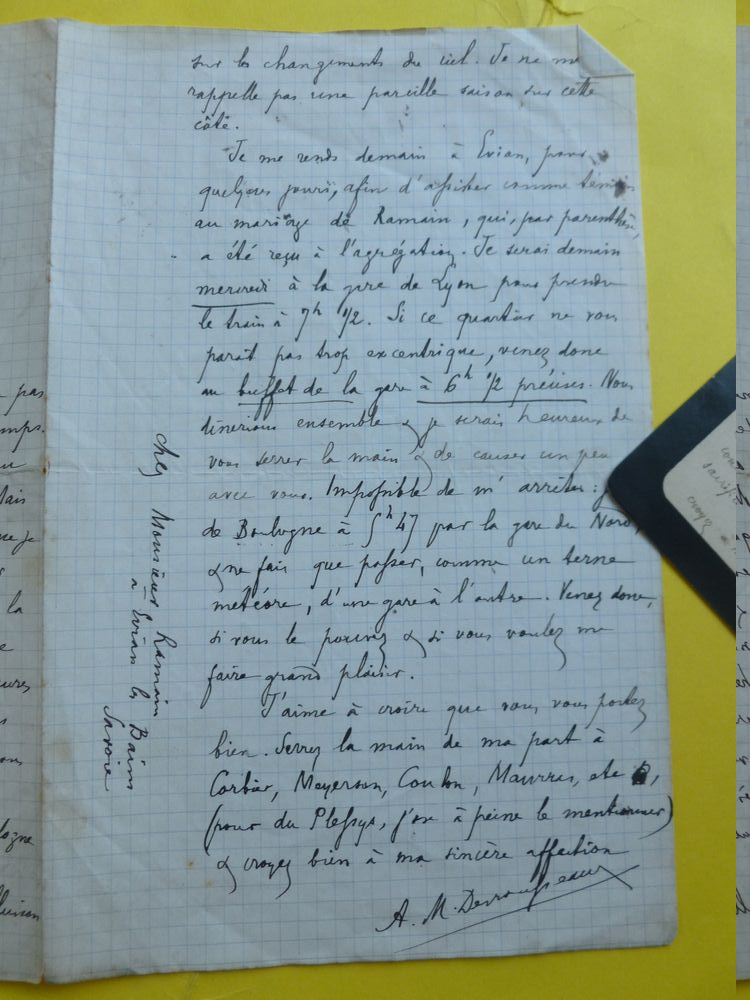 sur les changements du ciel. Je ne me
rappelle pas une pareille saison sur cette
côté.
Je me rends demain à Evian, pour
quelques jours, afin d'assister comme témoin
au mariage de Ramain, qui, par parenthèse,
a été reçu à l'agrégation. Je serai demain
mercredi à la gare de Lyon pour prendre
le train à 7h 1/2. Si ce quartier ne vous
paraît pas trop excentrique, venez donc
au buffet de la gare à 6h 1/2 précises. Nous
dînerions ensemble & je serais heureux de
vous serrer la main & de causer un peu
avec vous. Impossible de m'arrêter :
de Boulogne à 5h 47 par la gare du Nord,
& ne fais que passer, comme un terne
météore, d'une gare à l'autre. Venez donc,
si vous le pouvez & si vous voulez me
faire grand plaisir.
J'aime à croire que vous vous portez
bien. Serrez la main de ma part à
Corbier, Meyerson, Coulon, Maurras, etc
(pour du Plessys, j'ose à peine le mentionner)
& croyez bien à ma sincère affection
A. M. Desrousseaux
chez Monsieur Ramain
à Evian les Bains
Savoie
pas
mps.
Mais
que je
la
ogne